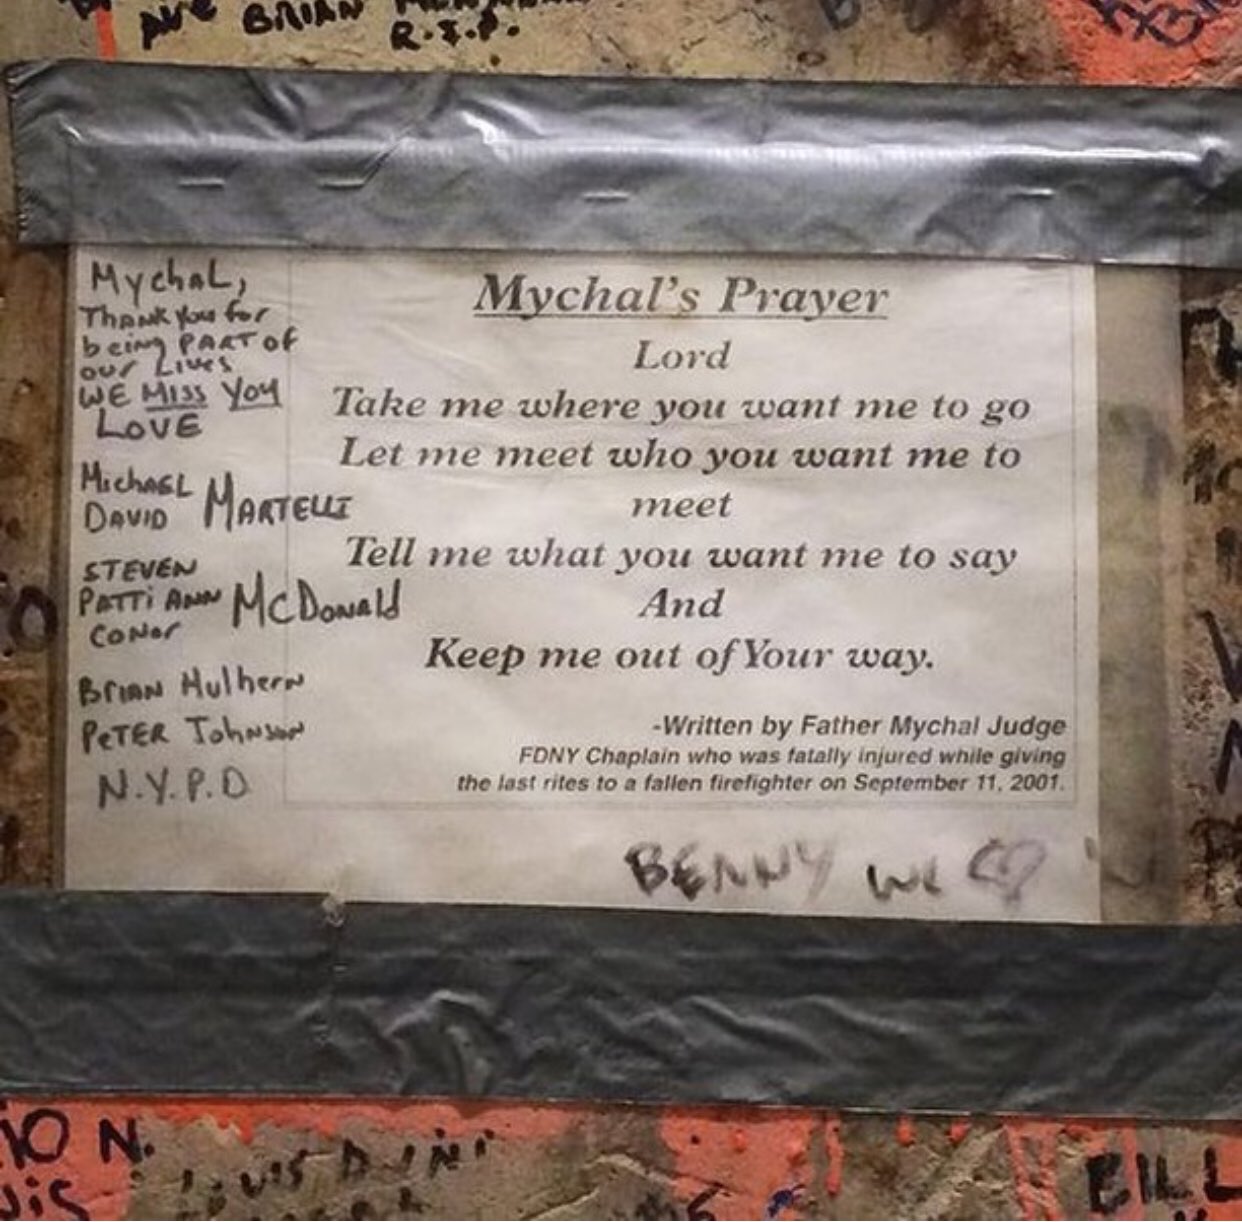 BRIAN
R.I.P.
Mychal,
Thank you for
being PART OF
our Lives
WE MISS YOU
LOVE
Michael
DAVID MARTELLI
STEVEN
PATTI ANN McDonald
Conor
Brian Mulhern
PETER Johnson
N.Y.P.D
Mychal's Prayer
Lord
Take me where you want me to go
Let me meet who you want me to
meet
Tell me what you want me to say
And
Keep me out of Your way.
-Written by Father Mychal Judge
FDNY Chaplain who was fatally injured while giving
the last rites to a fallen firefighter on September 11, 2001.
BENNY
N.
BILL